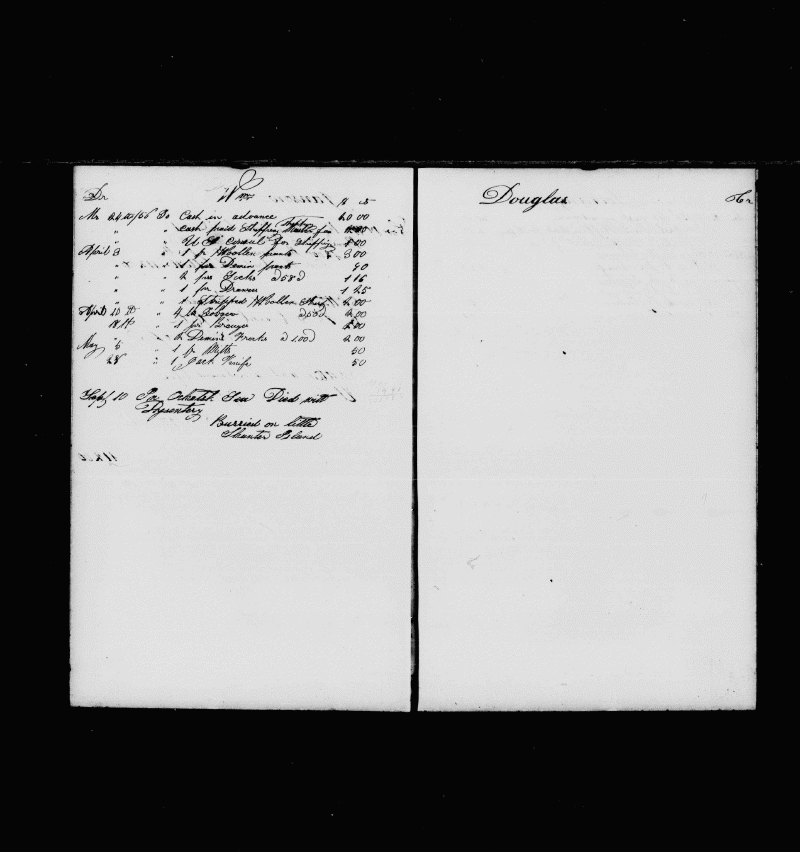 Dr Wm
$ cts
Mr 24 10/56 To Cash in advance 20 00
" " cash paid Shipping Master for Shipping 1 00
" " U S Consul for Shipping 1 00
April 3 " 1 pr Woollen pants 3 00
" " 1 pr Denim pants 90
" " 2 pr Socks a 58 1 16
" " 1 pr Drawers 1 25
" " 1 Stripped Woollen Shirt 2 00
April 10 th " 4 lb Tobacco a 50 2 00
18 th " 1 pr 2 00
" 2 Denims Frocks a 1.00 2 00
May 5 " 1 pr Mitts 50
28 " 1 Jack Knife 50
Sept 10 Sea Died with
Dysentery
Burried on little
Shanter Island
Douglas Cr